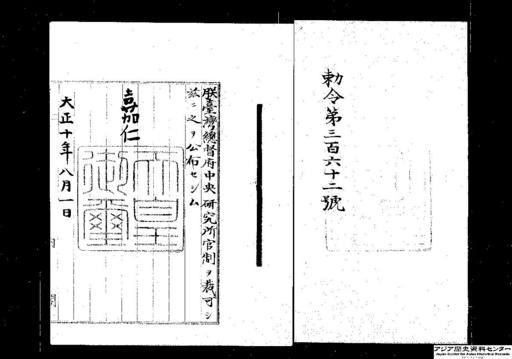 勅令第三百六十二號
朕臺灣總督府中央研究所官制ヲ裁可シ
玆ニ之ヲ公布セシム
嘉仁
天皇御璽
大正十年八月一日
内閣
アジア歴史資料センター
Japan Center for Asian Historical Records